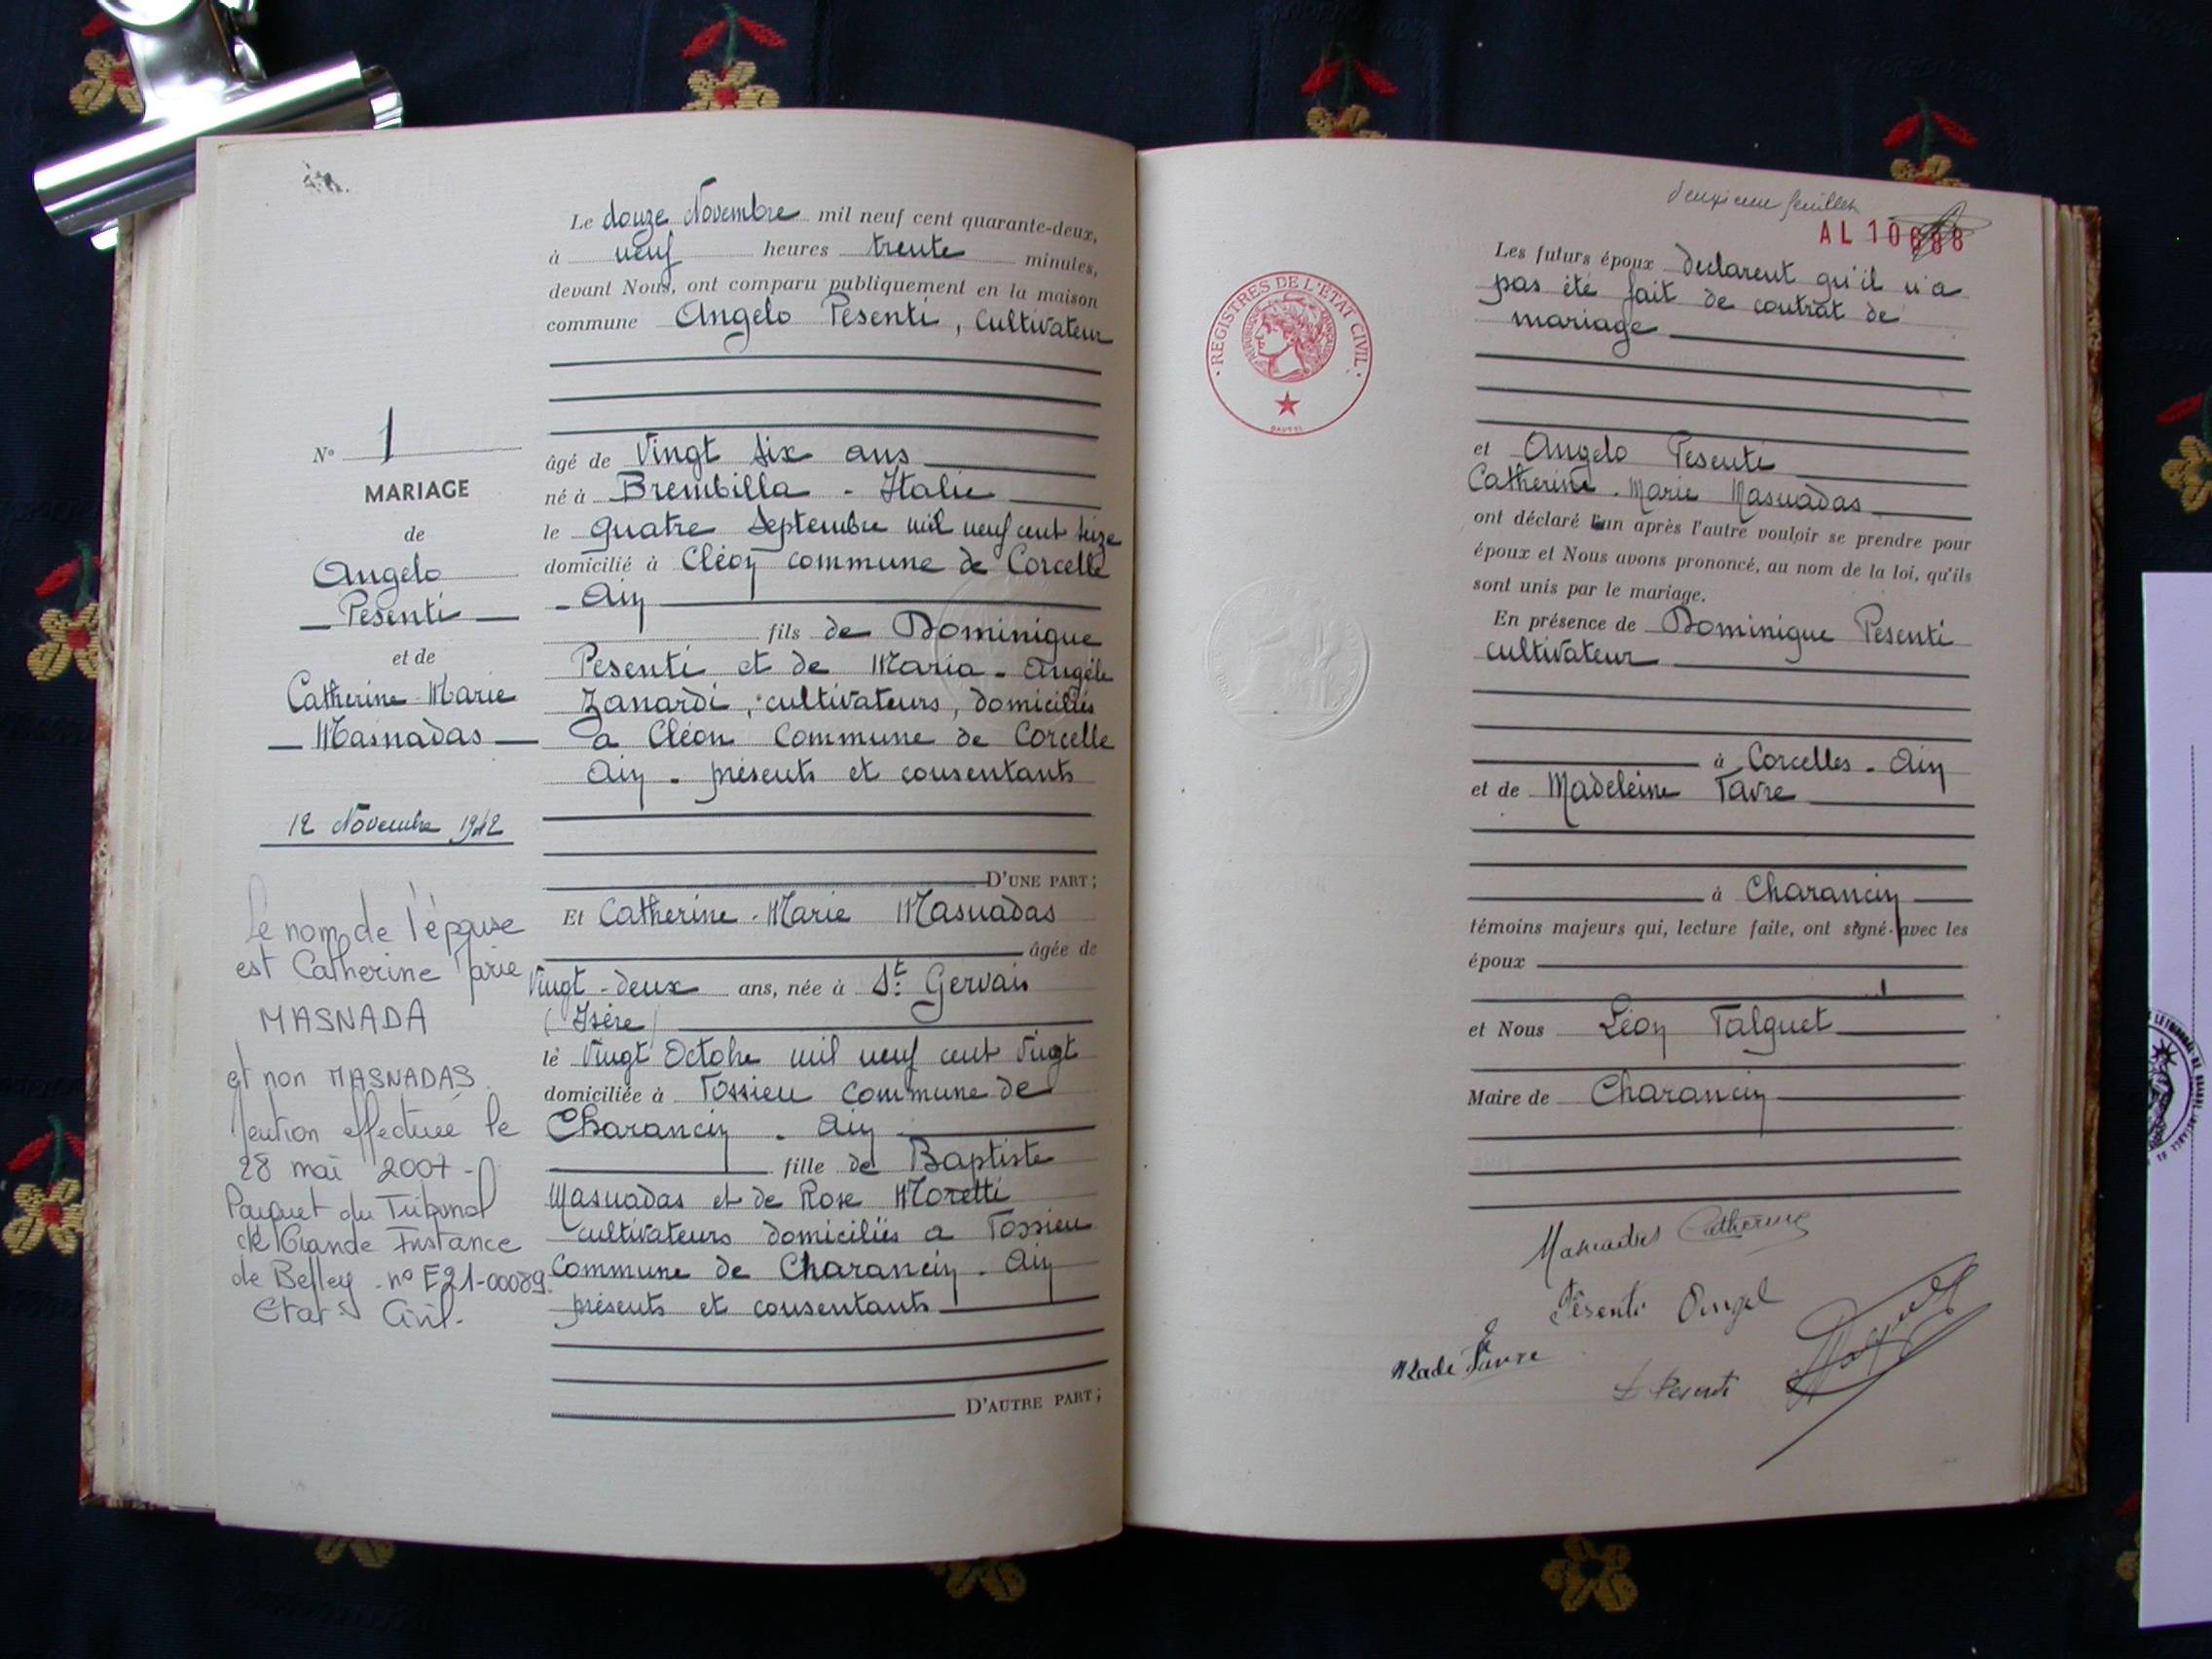 Le douze Novembre mil neuf cent quarante-deux,
à neuf heures trente minutes,
devant Nous, ont comparu publiquement en la maison
commune Angelo Pesenti, Cultivateur
âgé de Vingt six ans
né à Brembilla - Italie
le quatre Septembre mil neuf cent seize
domicilié à Cléon commune de Corcelle
- Ain
fils de Dominique
Pesenti et de Maria - Angèle
Zanardi, cultivateurs, domiciliés
a Cléon Commune de Corcelle
Ain - présents et consentants
D'UNE PART;
Et Catherine - Marie Masnadas
âgée de
Vingt-deux ans, née à St Gervais
(Isère)
le Vingt Octobre mil neuf cent Vingt
domiciliée à Tossieu commune de
Charancin - Ain
fille de Baptiste
Masnadas et de Rose Moretti
cultivateurs domiciliés a Tossieu
Commune de Charancin - Ain
présents et consentants
D'AUTRE PART;
No 1
MARIAGE
de
Angelo
Pesenti
et de
Catherine - Marie
Masnadas
12 Novembre 1942
Le nom de l'épouse
est Catherine Marie
MASNADA
et non MASNADAS.
Mention effectuée le
28 mai 2007 -
Parquet du Tribunal
de Grande Instance
de Belley - no E21-00089.
Etat Civil.
deuxieme feuillet
AL 10688
REGISTRES DE L'ETAT CIVIL
Les futurs époux declarent qu'il n'a
pas été fait de contrat de
mariage
et Angelo Pesenti
Catherine - Marie Masnadas
ont déclaré l'un après l'autre vouloir se prendre pour
époux et Nous avons prononcé, au nom de la loi, qu'ils
sont unis par le mariage.
En présence de Dominique Pesenti
cultivateur
à Corcelles - Ain
et de Madeleine Favre
à Charancin
témoins majeurs qui, lecture faite, ont signé avec les
époux
et Nous Léon Talguet
Maire de Charancin
Masnadas Catherine
Pesenti Angel
Made Favre
D Pesenti